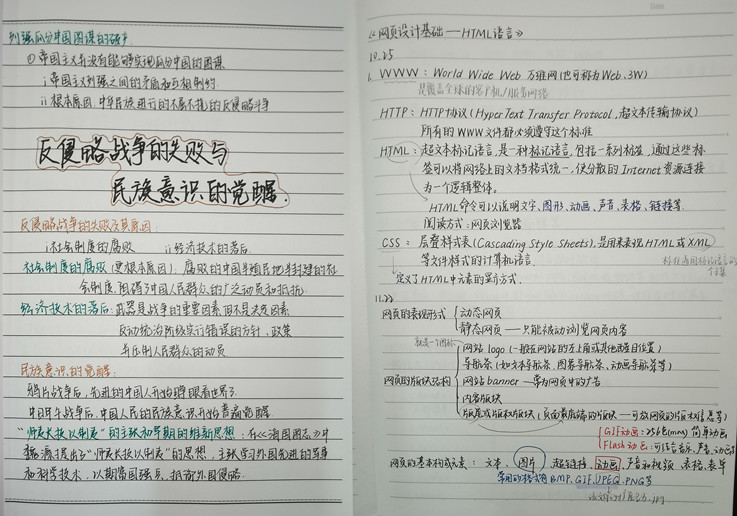 列强瓜分中国图谋的破产
① 帝国主义并没有能够实现瓜分中国的图谋
i 帝国主义列强之间的矛盾和互相制约
ii 根本原因 中华民族进行的不屈不挠的反侵略斗争
反侵略战争的失败与
民族意识的觉醒.
反侵略战争的失败及其原因:
i 社会制度的腐败 ii 经济技术的落后
社会制度的腐败(更根本原因): 腐败的中国半殖民地半封建的社
会制度,阻碍了中国人民群众的广泛动员和抵抗
经济技术的落后: 武器是战争的重要因素,但不是决定因素
反动统治阶级实行错误的方针、政策
与压制人民群众的动员
民族意识的觉醒:
鸦片战争后,先进的中国人开始睁眼看世界了
中日甲午战争后,中国人民的民族意识开始普遍觉醒
“师夷长技以制夷”的主张和早期的维新思想: 在《海国图志》中
魏源提出了“师夷长技以制夷”的思想, 主张学习外国先进的军事
和科学技术, 以期富国强兵, 抵御外国侵略.
《网页设计基础——HTML语言》
10.25
1. WWW: World Wide Web 万维网(也可称为Web、3W)
是覆盖全球的客户机/服务网络
HTTP: HTTP协议(HyperText Transfer Protocol,超文本传输协议)
所有的WWW文件都必须遵守这个标准
HTML: 超文本标记语言,是一种标记语言,包括一系列标签,通过这些标
签可以将网络上的文档格式统一,使分散的Internet资源连接
为一个逻辑整体.
HTML命令可以说明文字、图形、动画、声音、表格、链接等.
阅读方式:网页浏览器
CSS: 层叠样式表(Cascading Style Sheets),是用来表现HTML或XML
等文件样式的计算机语言.
标准通用标记语言的
子集
定义了HTML中元素的显示方式.
11.22
网页的表现形式 动态网页
静态网页——只能被动浏览网页内容
就是一个图标
网站logo(一般在网站的左上角或其他醒目位置)
导航条(如文本导航条、图养导航条、动画导航条等)
网页的版块结构 网站banner——常为网页中的广告
内容版块
版尾或版权版块(页面最底端的版块—可放网页的版权信息等)
GIF动画: 256色(max)简单动画
Flash动画: 可结合音乐、声音、动画等
网页的基本构成元素: 文本、图片、超链接、动画、声音和视频、表格、表单
常用的格式有BMP、GIF、JPEG、PNG等